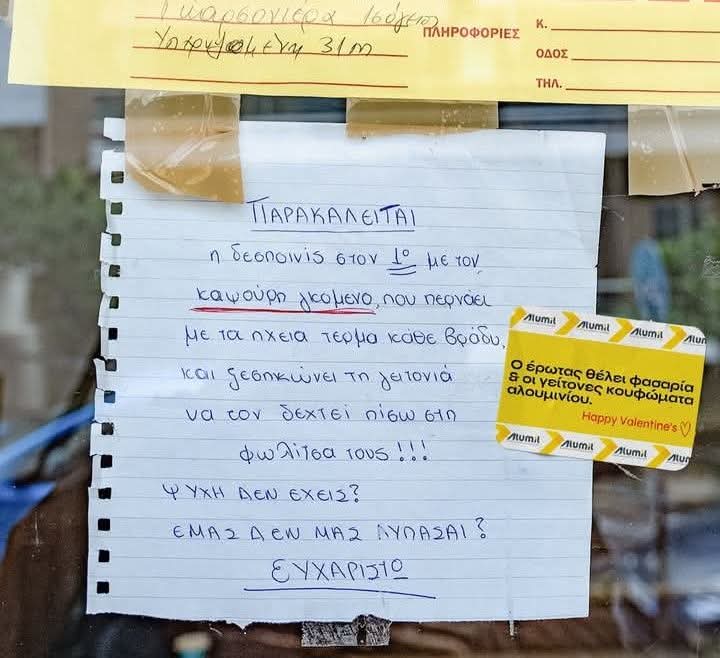 Γκαρσονιέρα Ισόγειο
31m
ΠΛΗΡΟΦΟΡΙΕΣ
Κ.
ΟΔΟΣ
ΤΗΛ.
ΠΑΡΑΚΑΛΕΙΤΑΙ
η δεσποινίς στον 1ο με τον
καψούρη γκόμενο, που περνάει
με τα ηχεία τέρμα κάθε βράδυ,
και ξεσηκώνει τη γειτονιά
να τον δεχτεί πίσω στη
φωλίτσα τους!!!
ΨΥΧΗ ΔΕΝ ΕΧΕΙΣ?
ΕΜΑΣ ΔΕΝ ΜΑΣ ΛΥΠΑΣΑΙ?
ΕΥΧΑΡΙΣΤΩ
Alumil Alumil Alumil Alum
Ο έρωτας θέλει φασαρία
& οι γείτονες κουφώματα
αλουμινίου.
Happy Valentine's
Alumil Alumil Alumil Alum